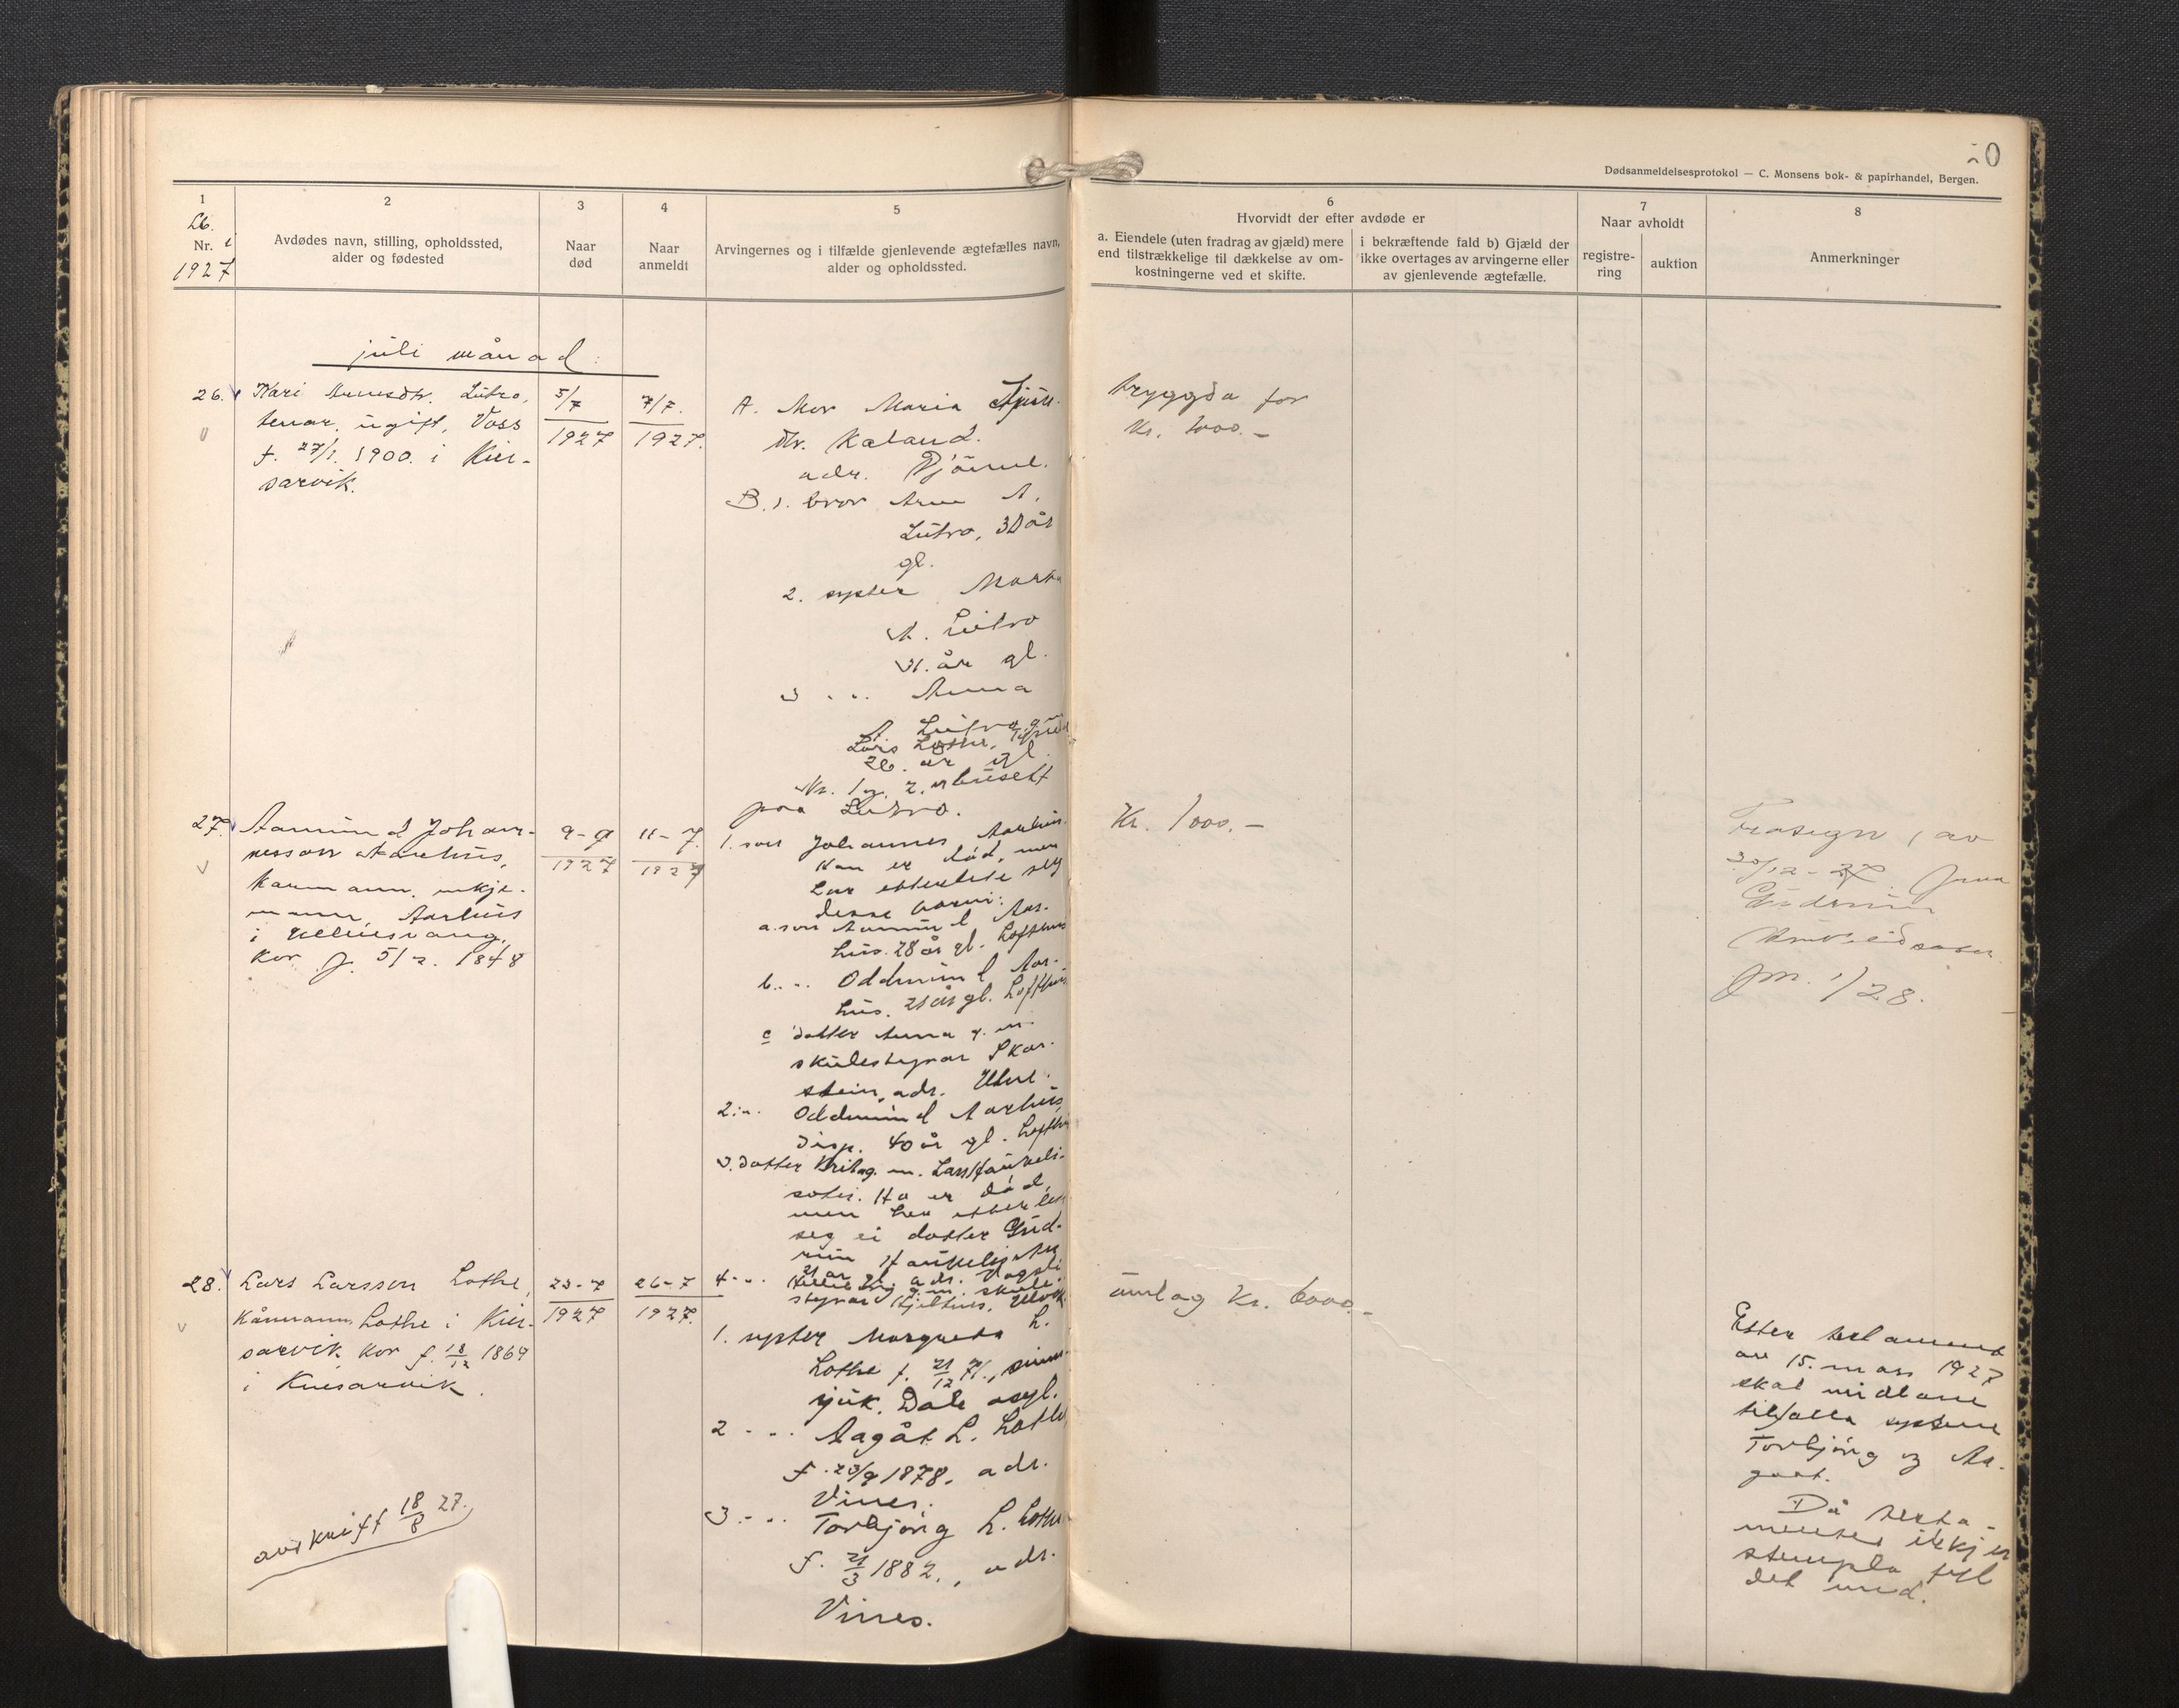 20
Dødsanmeldelsesprotokol — C. Monsens bok- & papirhandel, Bergen.
1
Nr. i
1927
2
Avdødes navn, stilling, opholdssted,
alder og fødested
3
Naar
død
4
Naar
anmeldt
5
Arvingernes og i tilfælde gjenlevende ægtefælles navn,
alder og opholdssted.
6
Hvorvidt der efter avdøde er
a. Eiendele (uten fradrag av gjæld) mere
end tilstrækkelige til dækkelse av om-
kostningerne ved et skifte.
i bekræftende fald b) Gjæld der
ikke overtages av arvingerne eller
av gjenlevende ægtefælle.
7
Naar avholdt
registre-
ring
auktion
8
Anmerkninger
juli månad:
26.
Kari Lutro,
tenar, ugift, Voss
f. 27/1. 1900. i Kin-
sarvik.
5/7
1927
7/7.
1927.
A. Mor Maria
dtr. Kaland.
adr.
B. 1. bror Arne A.
Lutro, 30 år
gl.
2. syster
A. Lutro
31. år gl.
3 - .. Anna
A. Lutro, g. m.
Lars Lothe,
26. år gl.
Nr. 1 og 2. er busett
paa Lutro.
trygda for
Kr. 1000.-
27.
Aamund Johan-
nesson Aarhus,
Karmann, enkje-
mann, Aarhus
i Ullensvang,
Kor f. 5/2. 1848
9-7
1927
11-7.
1927
1. son Johannes Aarhus.
Han er død, men
har etterlete seg
desse born:
a. son Aamund Aar-
hus. 28 år gl. Lofthus
b. .. Oddmund Aar-
hus. 21 år gl. Lofthus
c dotter Anna g. m.
skulestyrar Skar-
stein, adr.
2. .. Oddmund Aarhus,
disp. 40 år gl. Lofthus
3. dotter g. m. Lars
Ho er død,
men har etterlete
seg ei dotter Gud-
run
21 år gl. adr.
4 - .. g. m. skule-
styrar
Kr. 1000.-
av
30/12-27. fraa
Gudrun
jm. 1/28.
28.
Lars Larsson Lothe,
Kårmann, Lothe i Kin-
sarvik, Kor f. 18/12 1869
i Kinsarvik.
23-7
1927
26-7
1927.
1. syster Margreta L.
Lothe f. 21/12 71., sinns-
sjuk. Dale asyl.
2 - .. Aagåt L. Lothe
f. 23/9 1878, adr.
Vines.
3 - .. Torbjörg L. Lothe
f. 21/3 1882., adr.
Vines.
umlag Kr. 6000.-
Etter testament
av 15. mars 1927
skal midlane
tilfalla systrene
Torbjörg og Aa-
gaat.
Då testa-
mentet ikkje er
stempla fyl
det med.
avskrift 18/8 27.